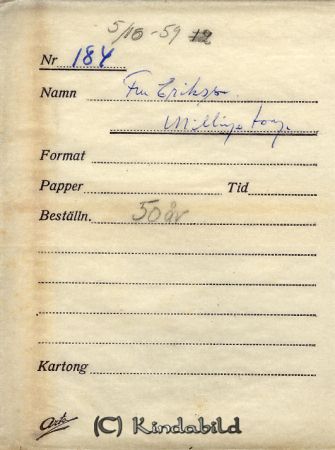 5/10-59 12
Nr 184
Namn Fru Eriksson
Format
Papper Tid
Beställn. 50 år
Kartong
(C) Kindabild